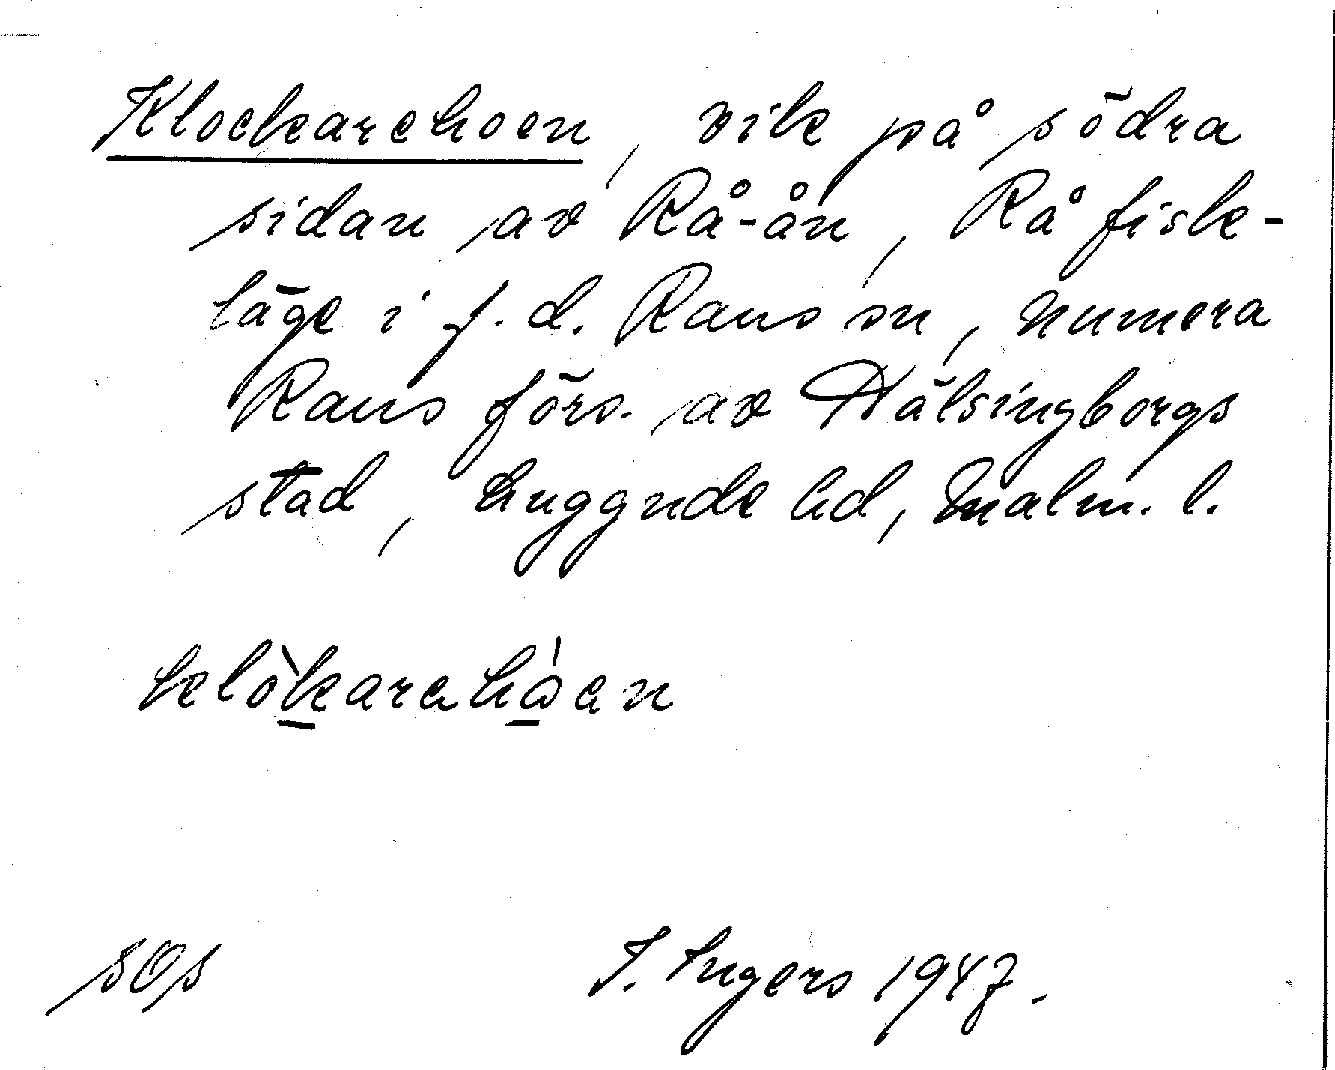 Klockarehoen, vik på södra
sidan av Rå-ån, Rå fisk-
läge i f.d. Raus sn, numera
Raus förs. av Hälsingborgs
stad, Luggude hd, Malm. l.
SOS I. Ingers 1947.